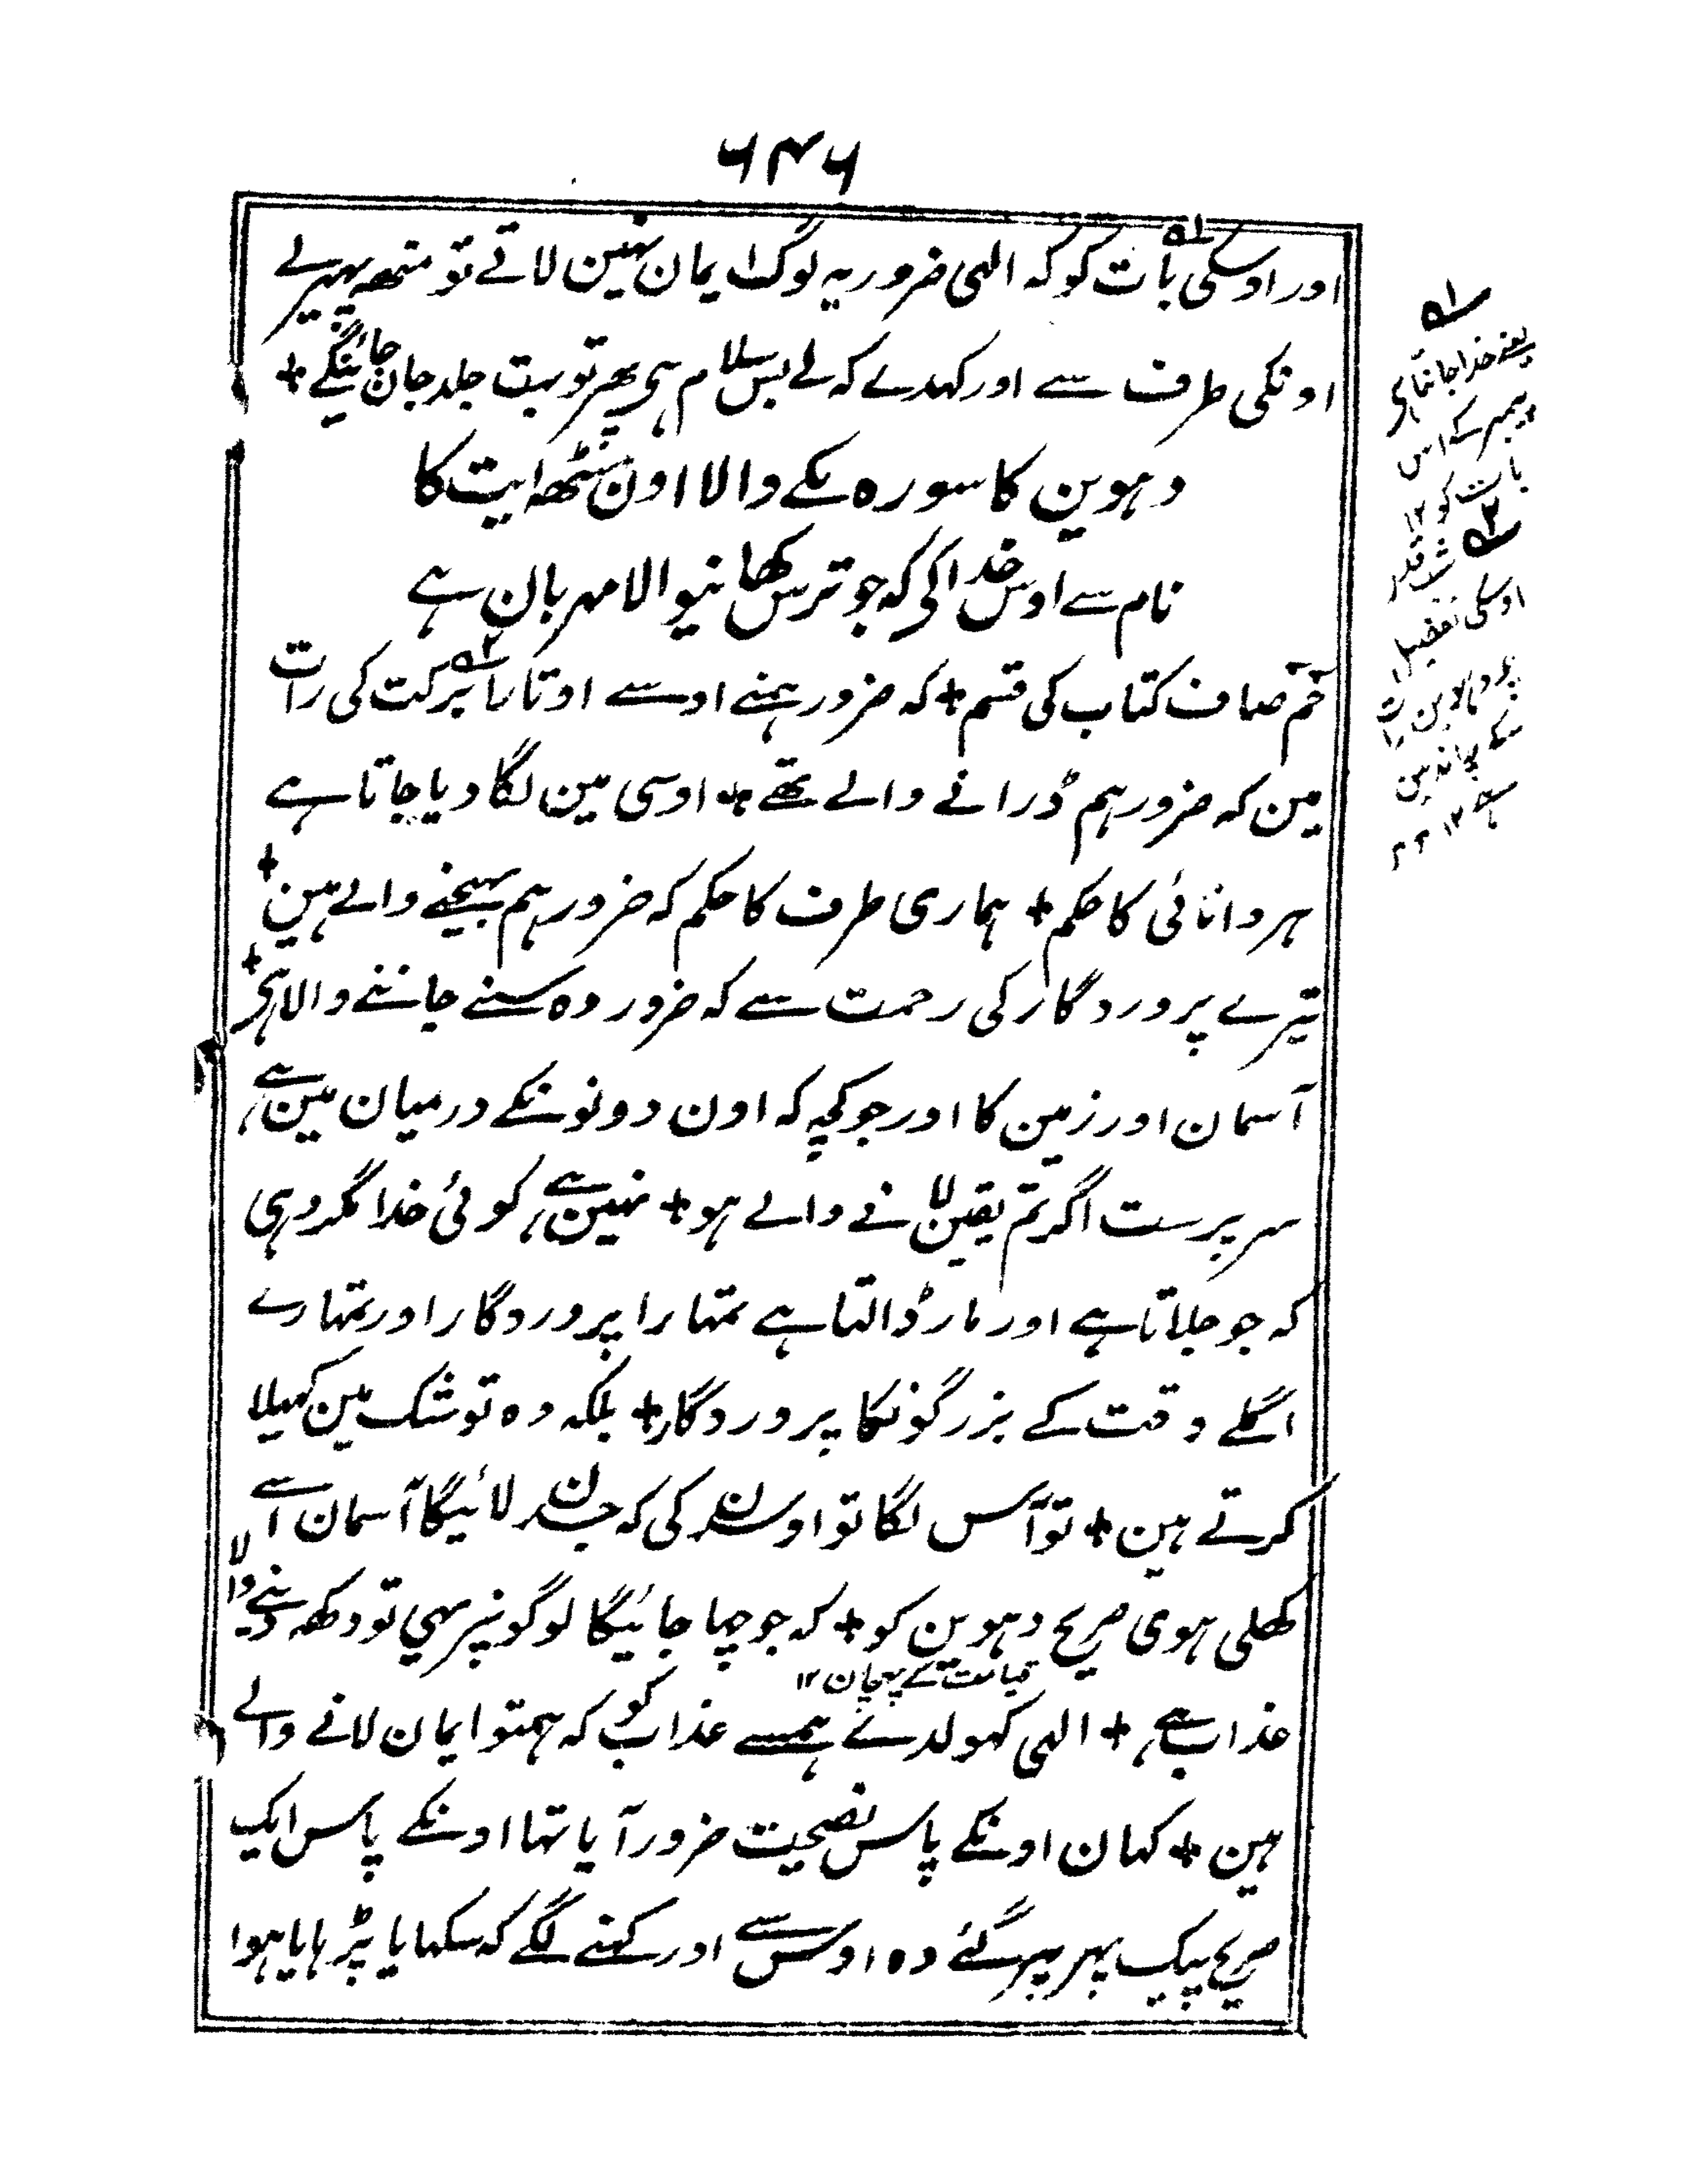 ۶۴۶
اور اوسکی بات کو کہ الہی ضرور یہ لوگ ایمان نہین لاتے تو منھ پہیر لے
اونکی طرف سے اور کہدے کہ لے بس سلام ہی پھر تو بہت جلد جان جائنگے +
دہوین کا سورہ مکے والا اون سٹھ ایت کا
نام سے اوس خدا کی کہ جو ترس کھانیوالا مہربان ہے
حٰم صاف کتاب کی قسم + کہ ضرور ہمنے اوسے اوتارا برکت کی رات
مین کہ ضرور ہم ڈرانے والے تھے + اوسی مین لگا دیا جاتا ہے
ہر دانائی کا حکم + ہماری طرف کا حکم کہ ضرور ہم بہیجنے والے ہین +
تیرے پروردگار کی رحمت سے کہ ضرور وہ سننے جاننے والا ہی +
آسمان اور زمین کا اور جو کچہ کہ اون دونونکے درمیان مین ہے
سرپرست اگر تم یقین لانے والے ہو + نہین ہے کوئی خدا مگر وہی
کہ جو جلاتا ہے اور مار ڈالتا ہے تمہارا پروردگار اور تمہارے
اگلے وقت کے بزرگونکا پروردگار + بلکہ وہ تو شک مین کہیلا
کرتے ہین + تو آس لگا تو اوس دن کی کہ جسدن لائیگا آسمان اسے
کھلی ہوی صریح دہوین کو + کہ جو چہا جائیگا لوگونپر یہی تو دکھ دینے والا
قیامت کے پہچان ۱۲
عذاب ہے + الہی کہولدے ہمسے عذاب کو کہ ہمتو ایمان لانے والے
ہین + کہان اونکے پاس نصیحت ضرور آیا تہا اونکے پاس ایک
صریح پیک پہر پہر گئے وہ اوس سے اور کہنے لگے کہ سکہایا پڑہایا ہوا
۱
یعنے خدا جانتا ہی
پیمبر کے اس
بات کو ۱۲
۲
شب قدر
اوسکی تفصیل
سے ۱۲